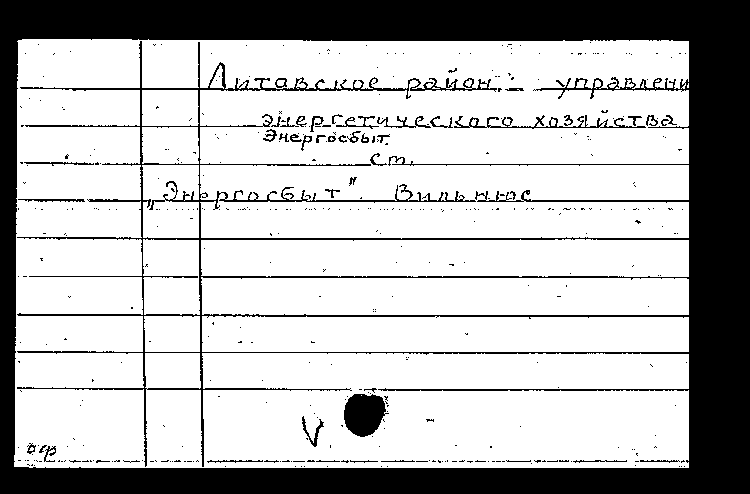 Литавское район. управлени
энергетического хозяйства
Энергосбыт.
см.
„Энергосбыт". Вильнюс